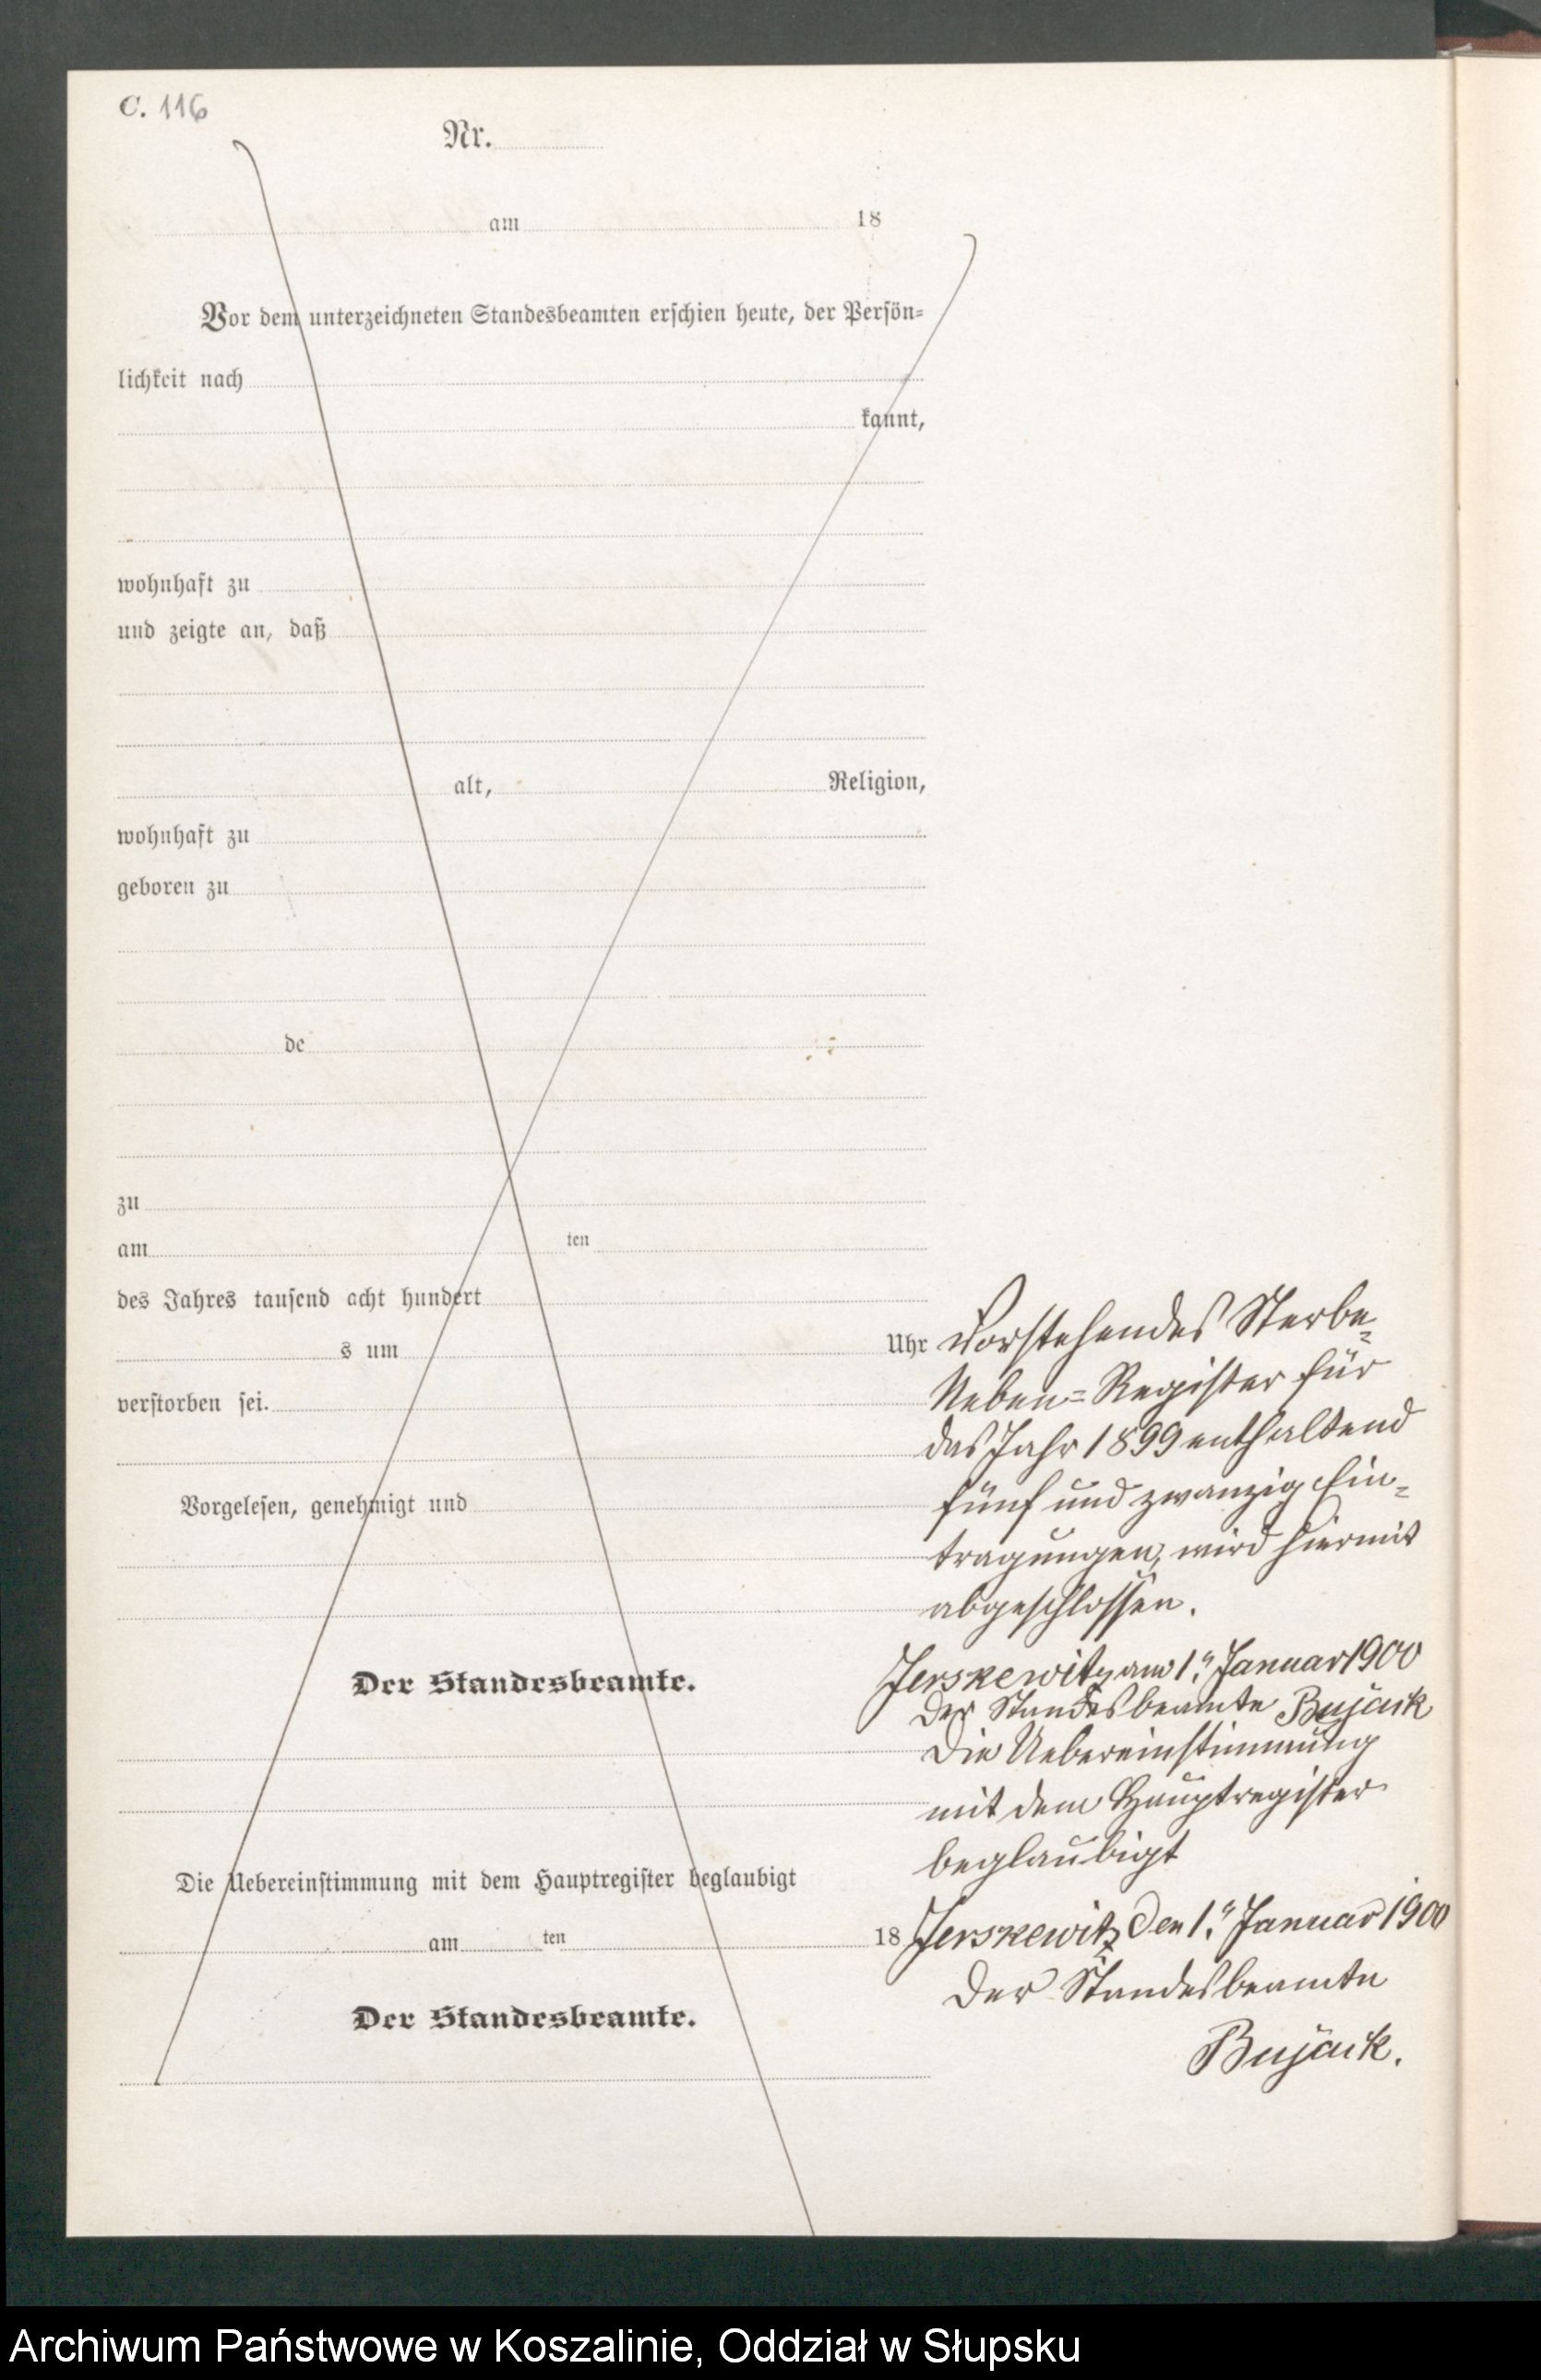 C. 116
Nr.
am 18
Vor dem unterzeichneten Standesbeamten erschien heute, der Persön=
lichkeit nach
kannt,
wohnhaft zu
und zeigte an, daß
alt, Religion,
wohnhaft zu
geboren zu
de
zu
am ten
des Jahres tausend acht hundert
s um Uhr
verstorben sei.
Vorgelesen, genehmigt und
Der Standesbeamte.
Die Uebereinstimmung mit dem Hauptregister beglaubigt
am ten 18
Der Standesbeamte.
Vorstehendes Sterbe=
Neben=Register für
das Jahr 1899 enthaltend
fünf und zwanzig Ein=
tragungen, wird hiermit
abgeschlossen.
Jerskewitz am 1. Januar 1900
Der Standesbeamte Bujack
Die Uebereinstimmung
mit dem Hauptregister
beglaubigt
Jerskewitz den 1. Januar 1900
Der Standesbeamte
Bujack.
Archiwum Państwowe w Koszalinie, Oddział w Słupsku